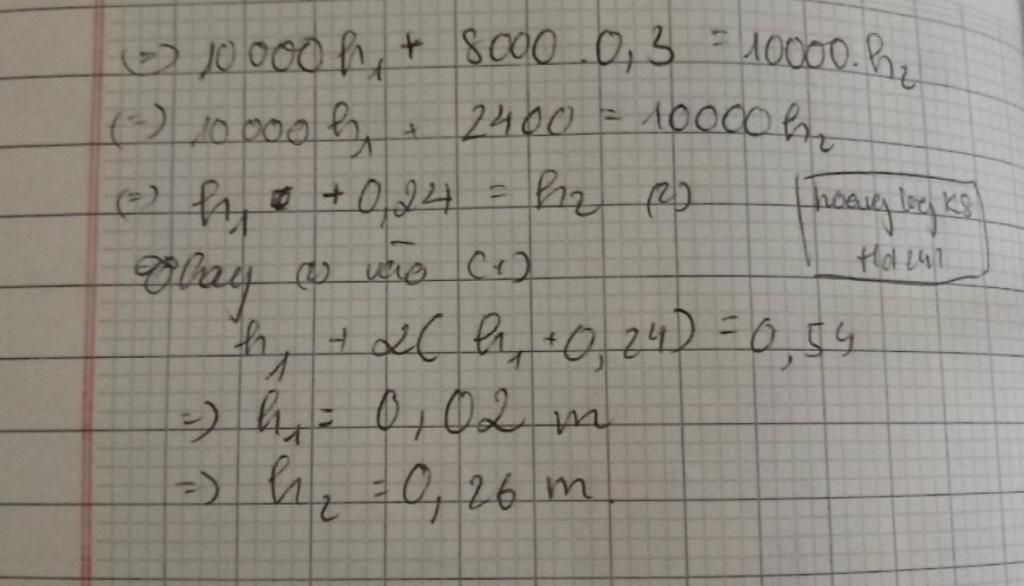 (=) 10000h₁ + 8000.0,3 = 10000.h₂
(=) 10000h₁ + 2400 = 10000h₂
(=) h₁ + 0,24 = h₂ (2)
Thay (2) vào (1)
h₁ + 2(h₁ + 0,24) = 0,54
=) h₁ = 0,02 m
=) h₂ = 0,26 m